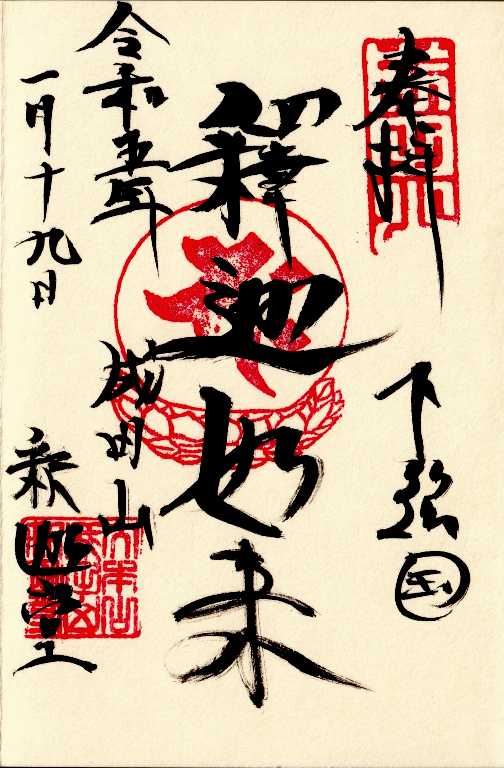 奉拝
下総国
釋迦如来
成田山
釈迦堂
令和五年
一月十九日